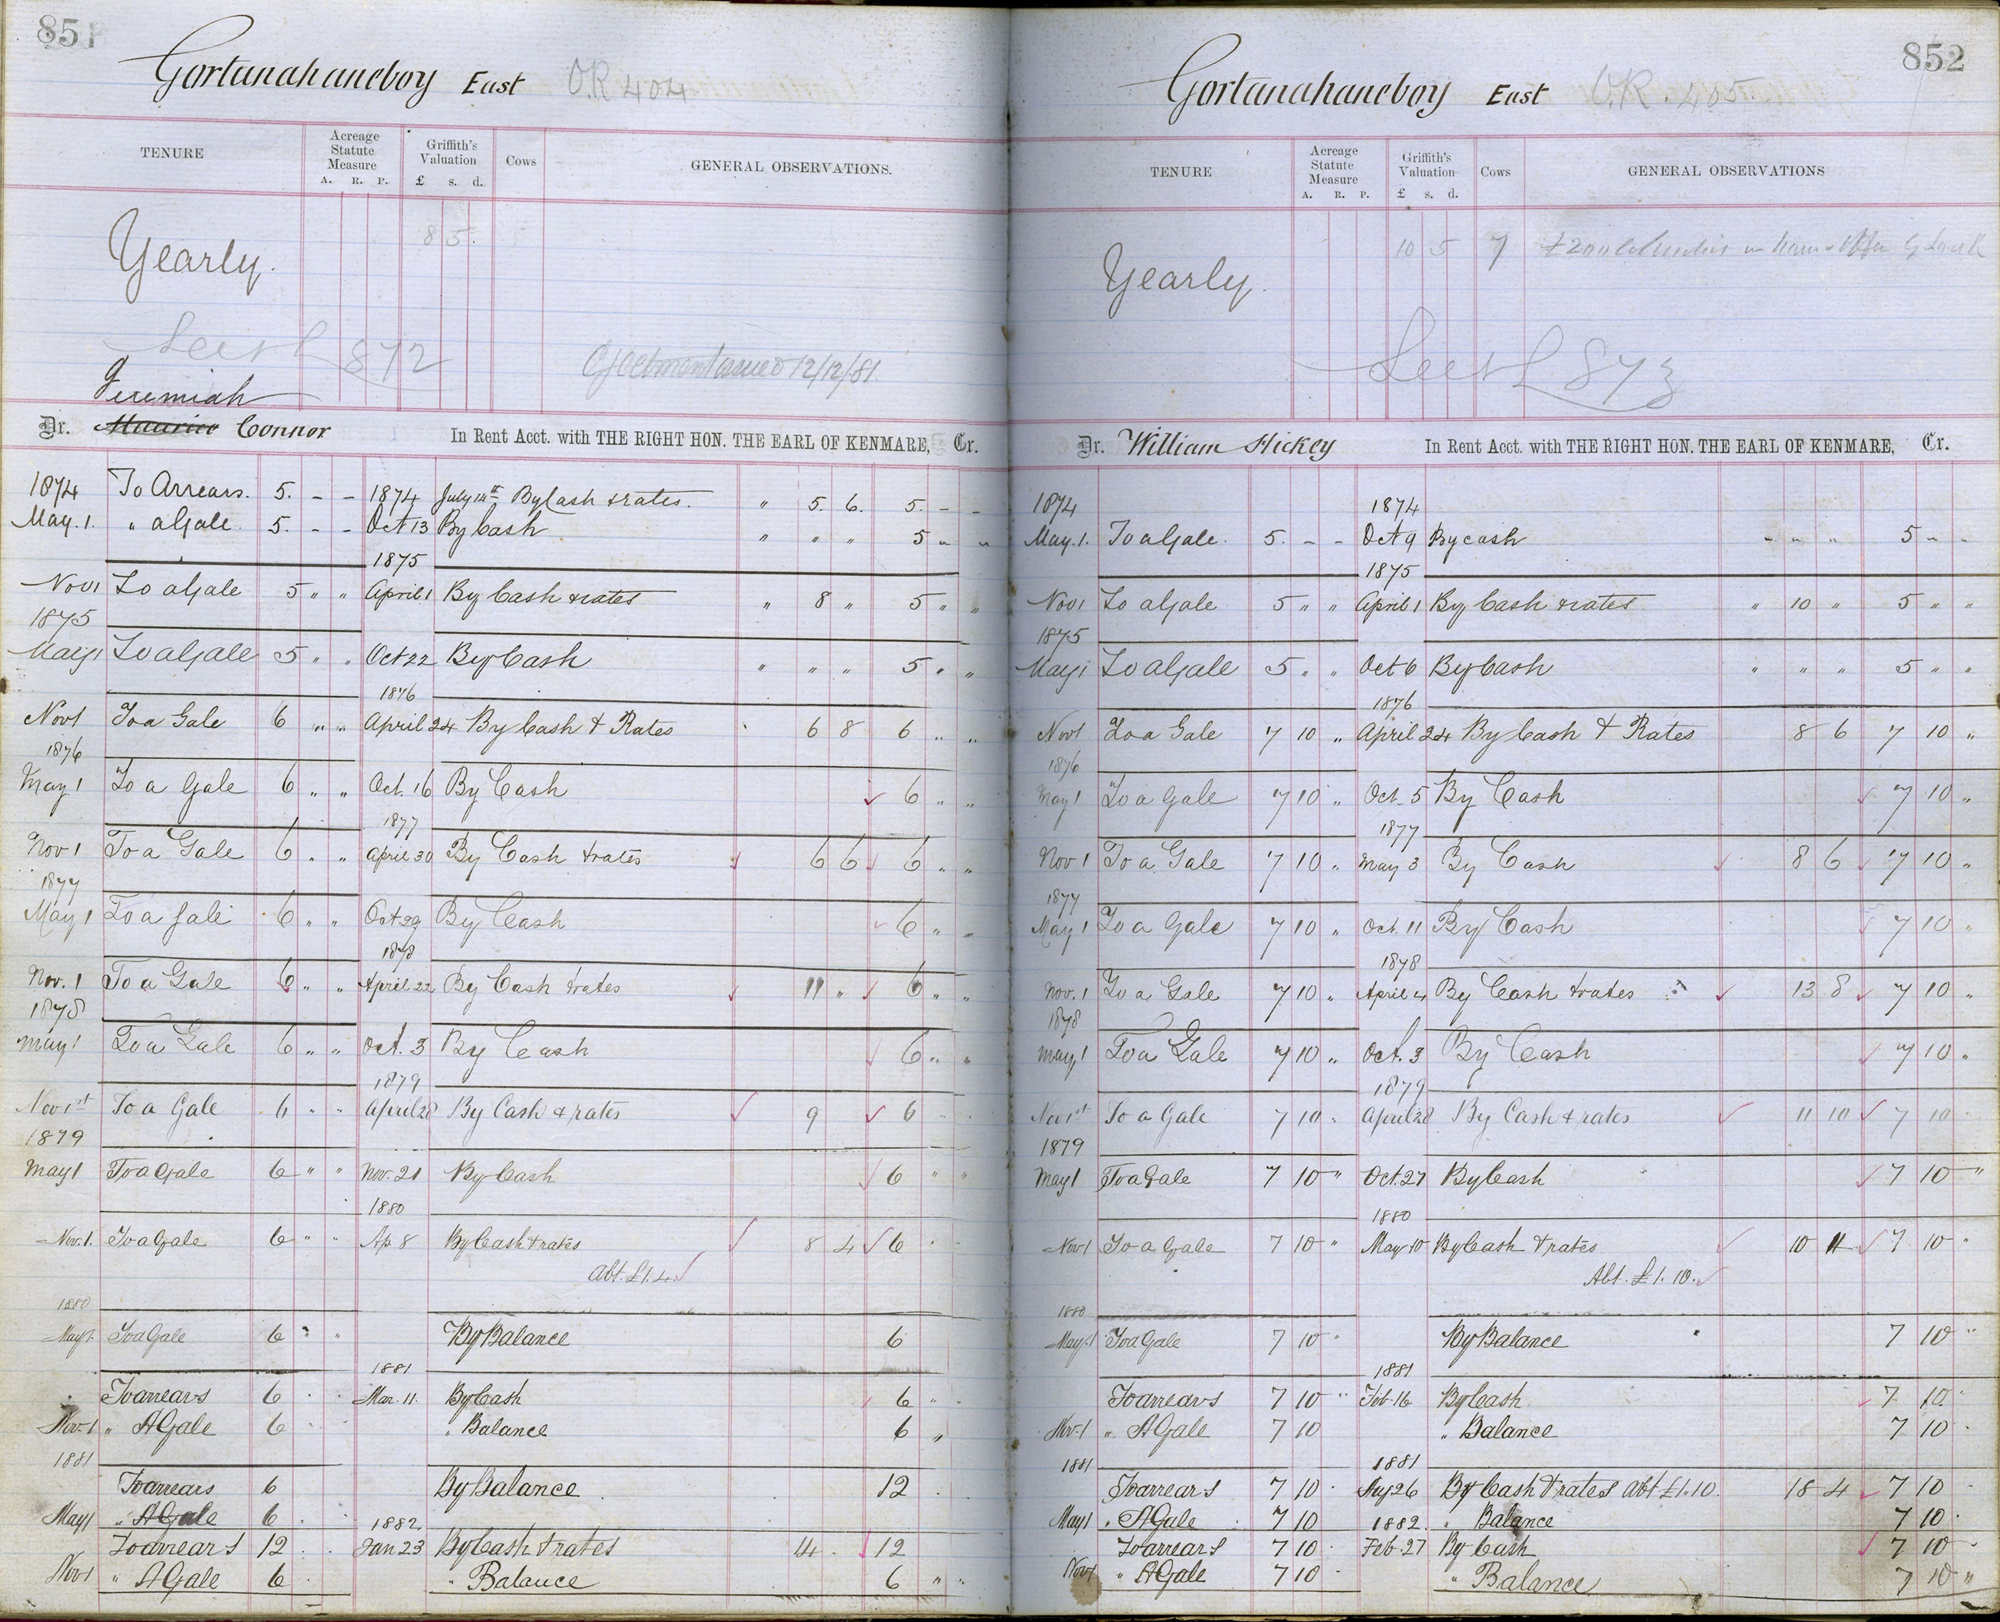 851
Gortanahaneboy East O.R 404
TENURE
Acreage Statute Measure
A. R. P.
Griffith's Valuation
£ s. d.
Cows
GENERAL OBSERVATIONS.
Yearly.
8 5.
872
12/12/81
Jeremiah
Dr. Maurice Connor In Rent Acct. with THE RIGHT HON. THE EARL OF KENMARE, Cr.
1874 To Arrears. 5. - - 1874 July 14th By Cash & rates. " 5. 6. 5. - -
May. 1. " a Gale 5. - - Oct 13 By Cash " " " 5 " "
1875
Nov 1 To a Gale 5 " " April 1 By Cash & rates " 8 " 5 " "
1875
May 1 To a Gale 5 " " Oct 22 By Cash " " " 5 " "
1876
Nov 1 To a Gale 6 " " April 24 By Cash & Rates 6 8 6 " "
1876
May 1 To a Gale 6 " " Oct. 16 By Cash ✓ 6 " "
1877
Nov 1 To a Gale 6 " " April 30 By Cash & rates ✓ 6 6 ✓ 6 " "
1877
May 1 To a Gale 6 " " Oct 29 By Cash ✓ 6 " "
1878
Nov. 1 To a Gale 6 " " April 22 By Cash & rates ✓ 11 " ✓ 6 " "
1878
May 1 To a Gale 6 " " Oct. 3 By Cash ✓ 6 " "
1879
Nov 1st To a Gale 6 " " April 28 By Cash & rates ✓ 9 ✓ 6
1879
May 1 To a Gale 6 " " Nov. 21 By Cash ✓ 6 " "
1880
Nov. 1. To a Gale 6 " " Ap. 8 By Cash & rates ✓ 8 4 ✓ 6 " "
Abt. £1.4. ✓
1880
May 1. To a Gale 6 " " By Balance 6
1881
To arrears 6 Mar. 11. By Cash 6 "
Nov. 1 " A Gale 6 " Balance 6 "
1881
To arrears 6 By Balance 12
May 1 " A Gale 6
1882.
To arrears 12 Jan 23 By Cash & rates 4. ✓ 12
Nov 1 " A Gale 6 " Balance 6 " "
852
Gortanahaneboy East O.R. 405.
TENURE
Acreage Statute Measure
A. R. P.
Griffith's Valuation
£ s. d.
Cows
GENERAL OBSERVATIONS
Yearly.
10 5 7
£200
873
Dr. William Hickey In Rent Acct. with THE RIGHT HON. THE EARL OF KENMARE, Cr.
1874 1874
May. 1. To a Gale. 5. - - Oct 9 By cash " " " 5 " -
1875
Nov 1 To a Gale 5 " " April 1 By Cash & rates " 10 " 5 " "
1875
May 1 To a Gale 5 " " Oct 6 By Cash " " " 5 " "
1876
Nov 1 To a Gale 7 10 " April 24 By Cash & Rates 8 6 7 10 "
1876
May 1 To a Gale 7 10 " Oct. 5 By Cash ✓ 7 10 "
1877
Nov 1 To a Gale 7 10 " May 3 By Cash ✓ 8 6 ✓ 7 10 "
1877
May 1 To a Gale 7 10 " Oct. 11 By Cash ✓ 7 10 "
1878
Nov. 1 To a Gale 7 10 " April 4 By Cash & rates ✓ 13 8 ✓ 7 10 "
1878
May 1 To a Gale 7 10 " Oct. 3 By Cash ✓ 7 10 "
1879
Nov 1st To a Gale 7 10 . April 28 By Cash & rates ✓ 11 10 ✓ 7 10
1879
May 1 To a Gale 7 10 " Oct. 27 By Cash ✓ 7 10 "
1880
Nov 1 To a Gale 7 10 " May 10 By Cash & rates ✓ 10 11 ✓ 7 10 "
Abt. £1. 10. ✓
1880
May 1 To a Gale 7 10 " By Balance 7 10 "
1881
To arrears 7 10 " Feb. 16 By Cash ✓ 7 10
Nov. 1 " A Gale 7 10 " Balance 7 10
1881 1881
To arrears 7 10 Aug 26 By Cash & rates Abt £1.10 18 4 ✓ 7 10
May 1 " A Gale 7 10 1882. " Balance 7 10
To arrears 7 10 Feb. 27 By Cash ✓ 7 10
Nov 1 " A Gale 7 10 " Balance 7 10 "